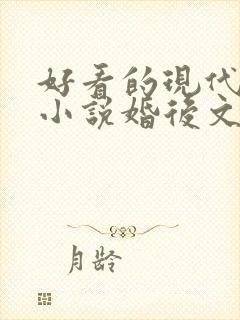 好看的現代
小說婚後文
月龄